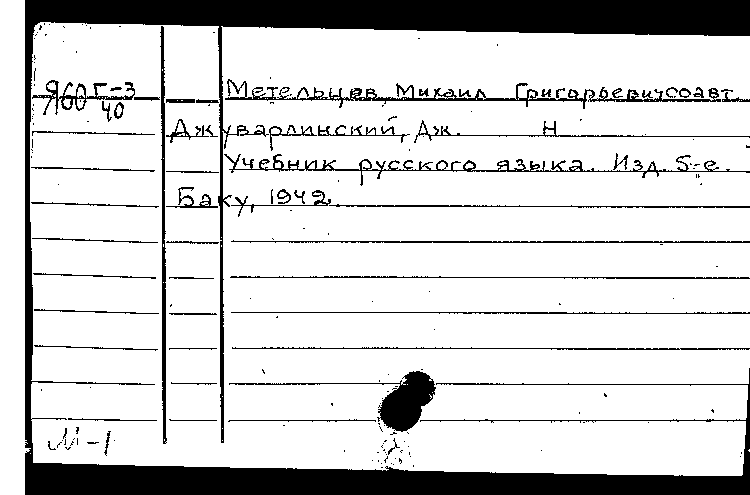 Я60 Г-3 Метельцев, Михаил Григорьевич соавт.
40
Джуварлинский, Дж. Н
Учебник русского языка. Изд. 5-е.
Баку, 1942.
М-1